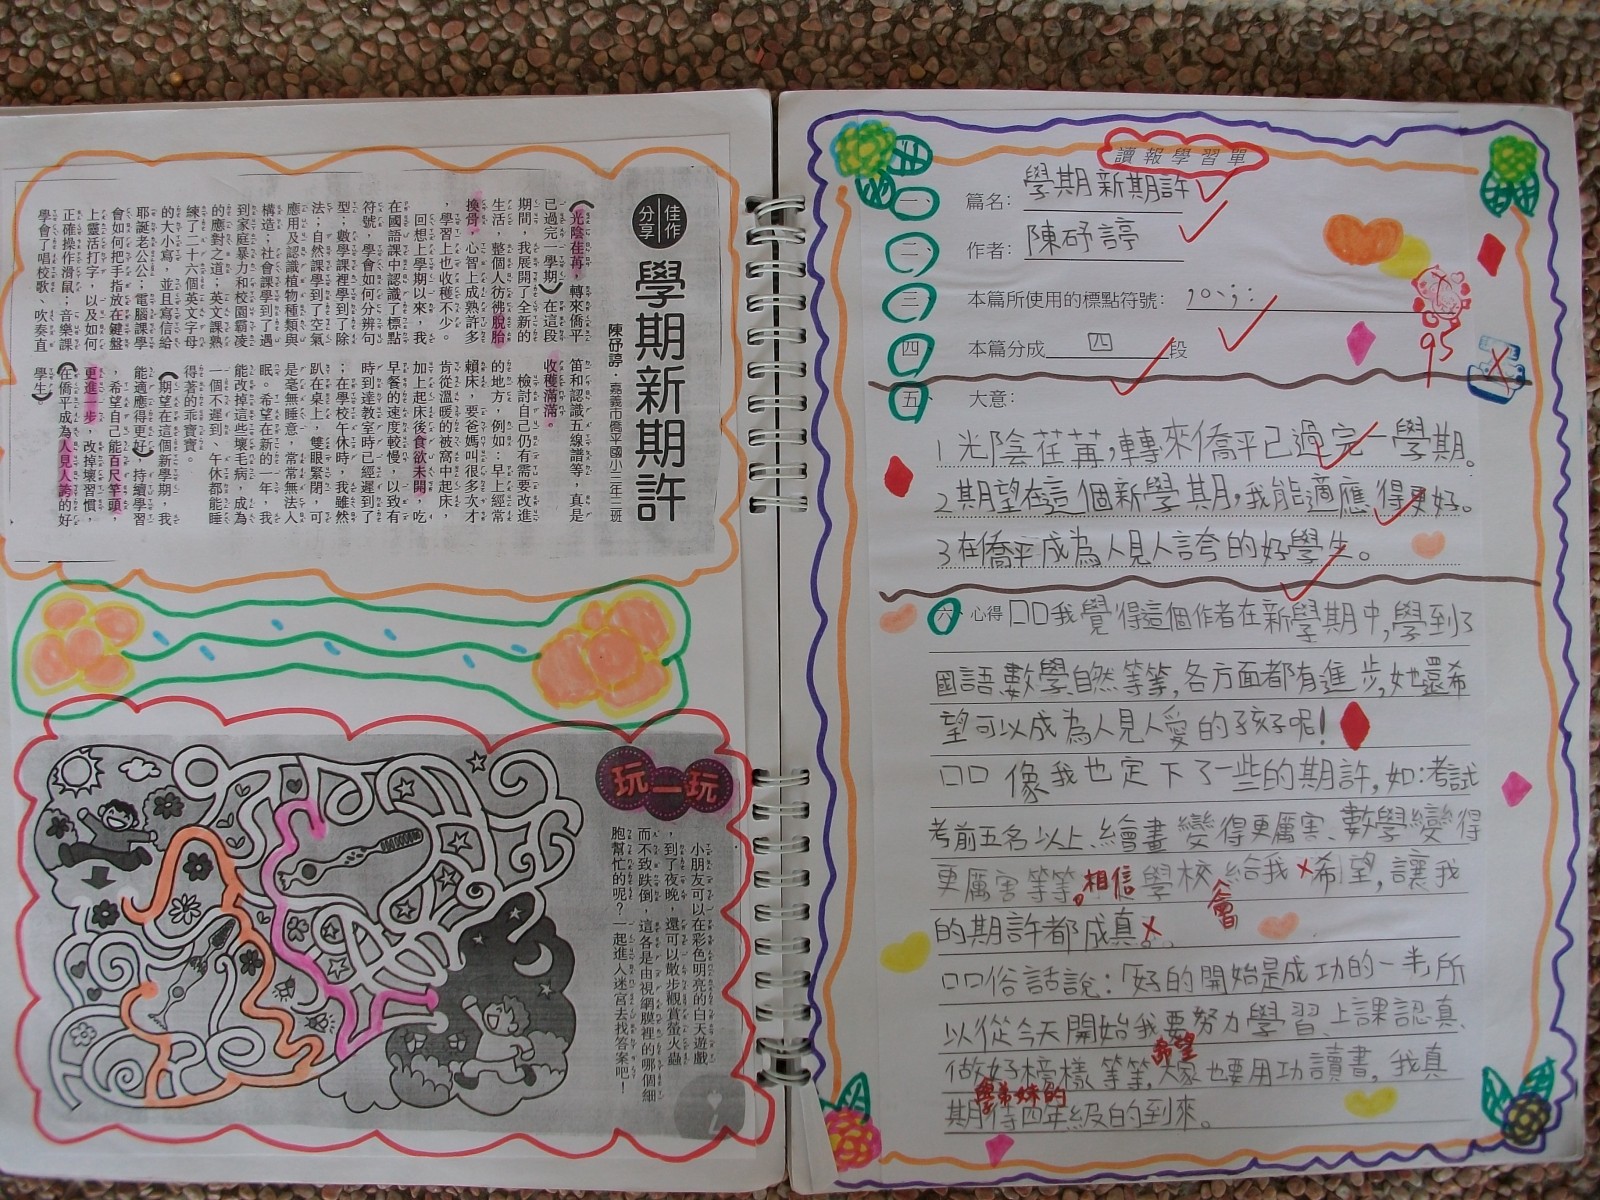 佳作分享
學期新期許
陳砡諪‧嘉義市僑平國小三年二班
光陰荏苒，轉來僑平
已過完一學期，在這段
期間，我展開了全新的
生活，整個人彷彿脫胎
換骨，心智上成熟許多
，學習上也收穫不少。
回想上學期以來，我
在國語課中認識了標點
符號，學會如何分辨句
型；數學課裡學到了除
法；自然課學到了空氣
應用及認識植物種類與
構造；社會課學到了遇
到家庭暴力和校園霸凌
的應對之道；英文課熟
練了二十六個英文字母
的大小寫，並且寫信給
耶誕老公公；電腦課學
會如何把手指放在鍵盤
上靈活打字，以及如何
正確操作滑鼠；音樂課
學會了唱校歌、吹奏直
笛和認識五線譜等，真是
收穫滿滿。
檢討自己仍有需要改進
的地方，例如：早上經常
賴床，要爸媽叫很多次才
肯從溫暖的被窩中起床，
加上起床後食欲未開，吃
早餐的速度較慢，以致有
時到達教室時已經遲到了
；在學校午休時，我雖然
趴在桌上，雙眼緊閉，可
是毫無睡意，常常無法入
眠。希望在新的一年，我
能改掉這些壞毛病，成為
一個不遲到、午休都能睡
得著的乖寶寶。
期望在這個新學期，我
能適應得更好，持續學習
，希望自己能百尺竿頭，
更進一步，改掉壞習慣，
在僑平成為人見人誇的好
學生。
玩一玩
小朋友可以在彩色明亮的白天遊戲
，到了夜晚，還可以散步觀賞螢火蟲
而不致跌倒，這各是由視網膜裡的哪個細
胞幫忙的呢？一起進入迷宮去找答案吧！
讀報學習單
一、篇名：學期新期許
二、作者：陳砡諪
三、本篇所使用的標點符號：，。、；：
95
四、本篇分成四段
五、大意：
1.光陰荏苒，轉來僑平已過完一學期。
2.期望在這個新學期，我能適應得更好。
3.在僑平成為人見人誇的好學生。
六、心得 口口我覺得這個作者在新學期中，學到了
國語、數學、自然等等，各方面都有進步，她還希
望可以成為人見人愛的孩子呢！
口口像我也定下了一些的期許，如：考試
考前五名以上、繪畫變得更厲害、數學變得
更厲害等等。相信學校會給我希望，讓我
的期許都成真。
口口俗話說：「好的開始是成功的一半，所
以從今天開始我要努力學習、上課認真、
做好榜樣等等，希望大家也要用功讀書，我真
學弟妹的
期待四年級的到來。